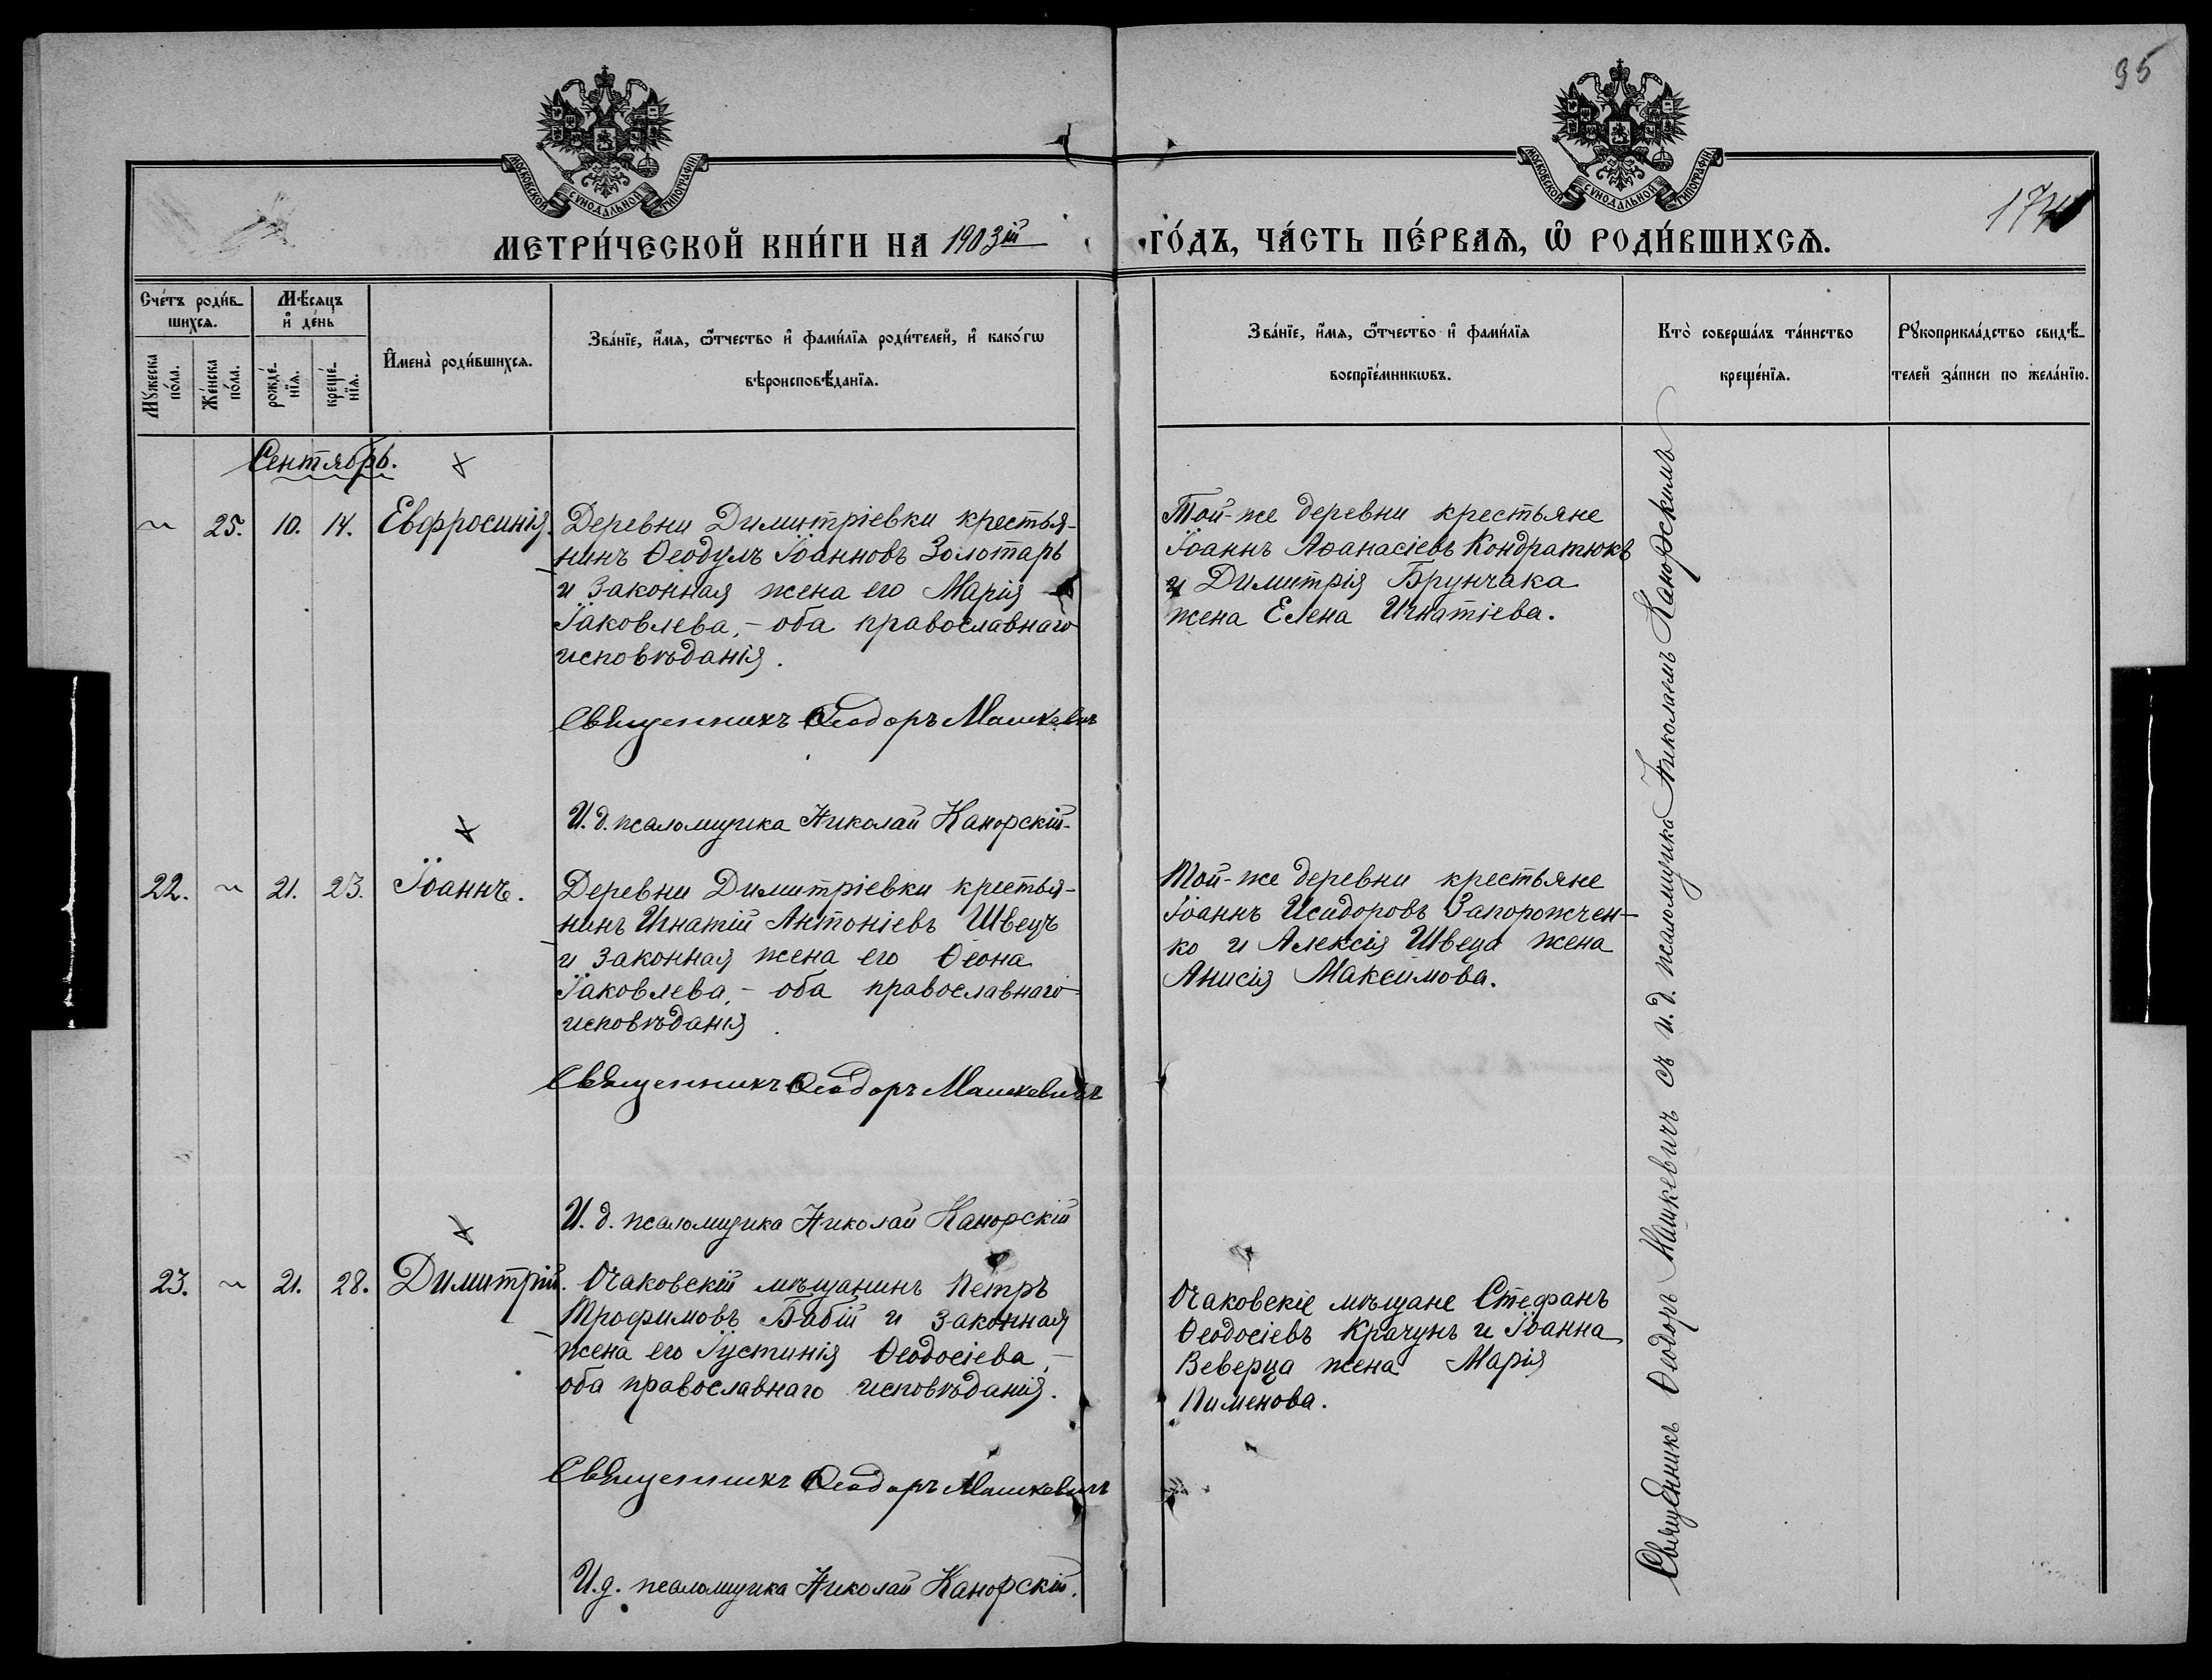 95
МОСКОВСКОЙ СѴНОДАЛЬНОЙ ТИПОГРАФІИ
МОСКОВСКОЙ СѴНОДАЛЬНОЙ ТИПОГРАФІИ
МЕТРИ́ЧЕСКОЙ КНИ́ГИ НА 1903й ГО́ДЪ, ЧА́СТЬ ПЕ́РВАѦ, Ѽ РОДИ́ВШИХСѦ.
Сче́тъ роди́в-
шихсѧ.
Мꙋ́жеска
по́ла.
Же́нска
по́ла.
Мѣ́сѧцъ
и҆ де́нь
рожде́-
нїѧ.
креще́-
нїѧ.
И҆мена̀ роди́вшихсѧ.
Зва́нїе, и҆́мѧ, ѻ҆́тчество и҆ фами́лїѧ роди́телей, и҆ како́гѡ
вѣроисповѣ́данїѧ.
Зва́нїе, и҆́мѧ, ѻ҆́тчество и҆ фами́лїѧ
воспрїе́мникѡвъ.
Кто̀ соверша́лъ та́инство
креще́нїѧ.
Рꙋкоприкла́дство свидѣ́-
телей за́писи по жела́нїю.
Сентябрь.
~ 25. 10. 14. Евфросинія.
Деревни Димитріевки крестья-
нинъ Ѳеодулъ Іоанновъ Золотарь
и законная жена его Марія
Іаковлева, - оба православнаго
исповѣданія.
Священникъ Ѳеодоръ Машкевичъ
И. д. псаломщика Николай Канорскій
Той-же деревни крестьяне
Іоаннъ Аѳанасіевъ Кондратюкъ
и Димитрія Брунчака
жена Елена Игнатіева.
22. ~ 21. 23. Іоаннъ.
Деревни Димитріевки крестья-
нинъ Игнатій Антоніевъ Швецъ
и законная жена его Ѳеона
Іаковлева, - оба православнаго
исповѣданія.
Священникъ Ѳеодоръ Машкевичъ
И. д. псаломщика Николай Канорскій
Той-же деревни крестьяне
Іоаннъ Исидоровъ Запорожчен-
ко и Алексія Швеца жена
Анисія Максимова.
23. ~ 21. 28. Димитрій.
Очаковскій мѣщанинъ Петръ
Трофимовъ Бабій и законная
жена его Іустинія Ѳеодосіева, -
оба православнаго исповѣданія.
Священникъ Ѳеодоръ Машкевичъ
И. д. псаломщика Николай Канорскій.
Очаковскіе мѣщане Стефанъ
Ѳеодосіевъ Крачунъ и Іоанна
Веверца жена Марія
Пименова.
Священникъ Ѳеодоръ Машкевичъ съ и. д. псаломщика Николаемъ Канорскимъ